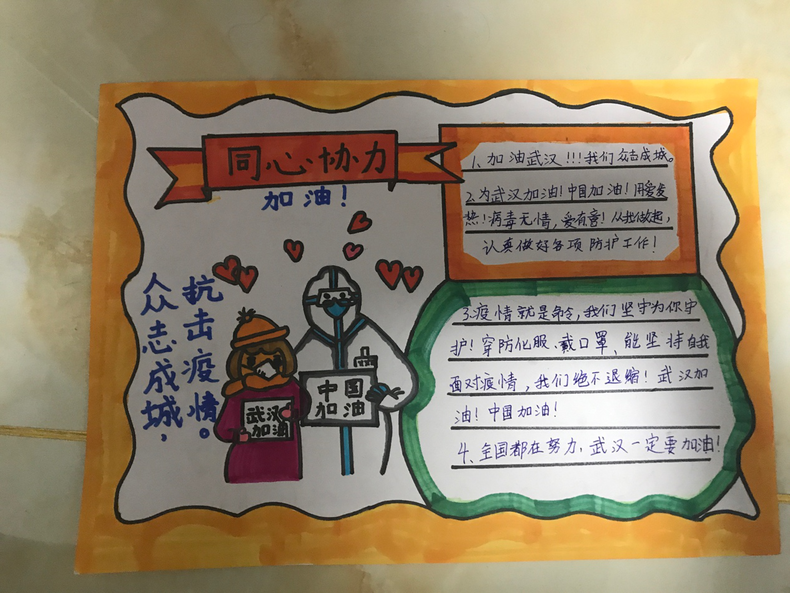 同心协力
加油！
众志成城，
抗击疫情。
武汉
加油
中国
加油
1、加油武汉！！！我们众志成城。
2.为武汉加油！中国加油！用爱发
热！病毒无情，爱有意！从我做起，
认真做好各项防护工作！
3.疫情就是命令，我们坚守为你守
护！穿防化服、戴口罩、能坚持自我
面对疫情，我们绝不退缩！武汉加
油！中国加油！
4、全国都在努力，武汉一定要加油！